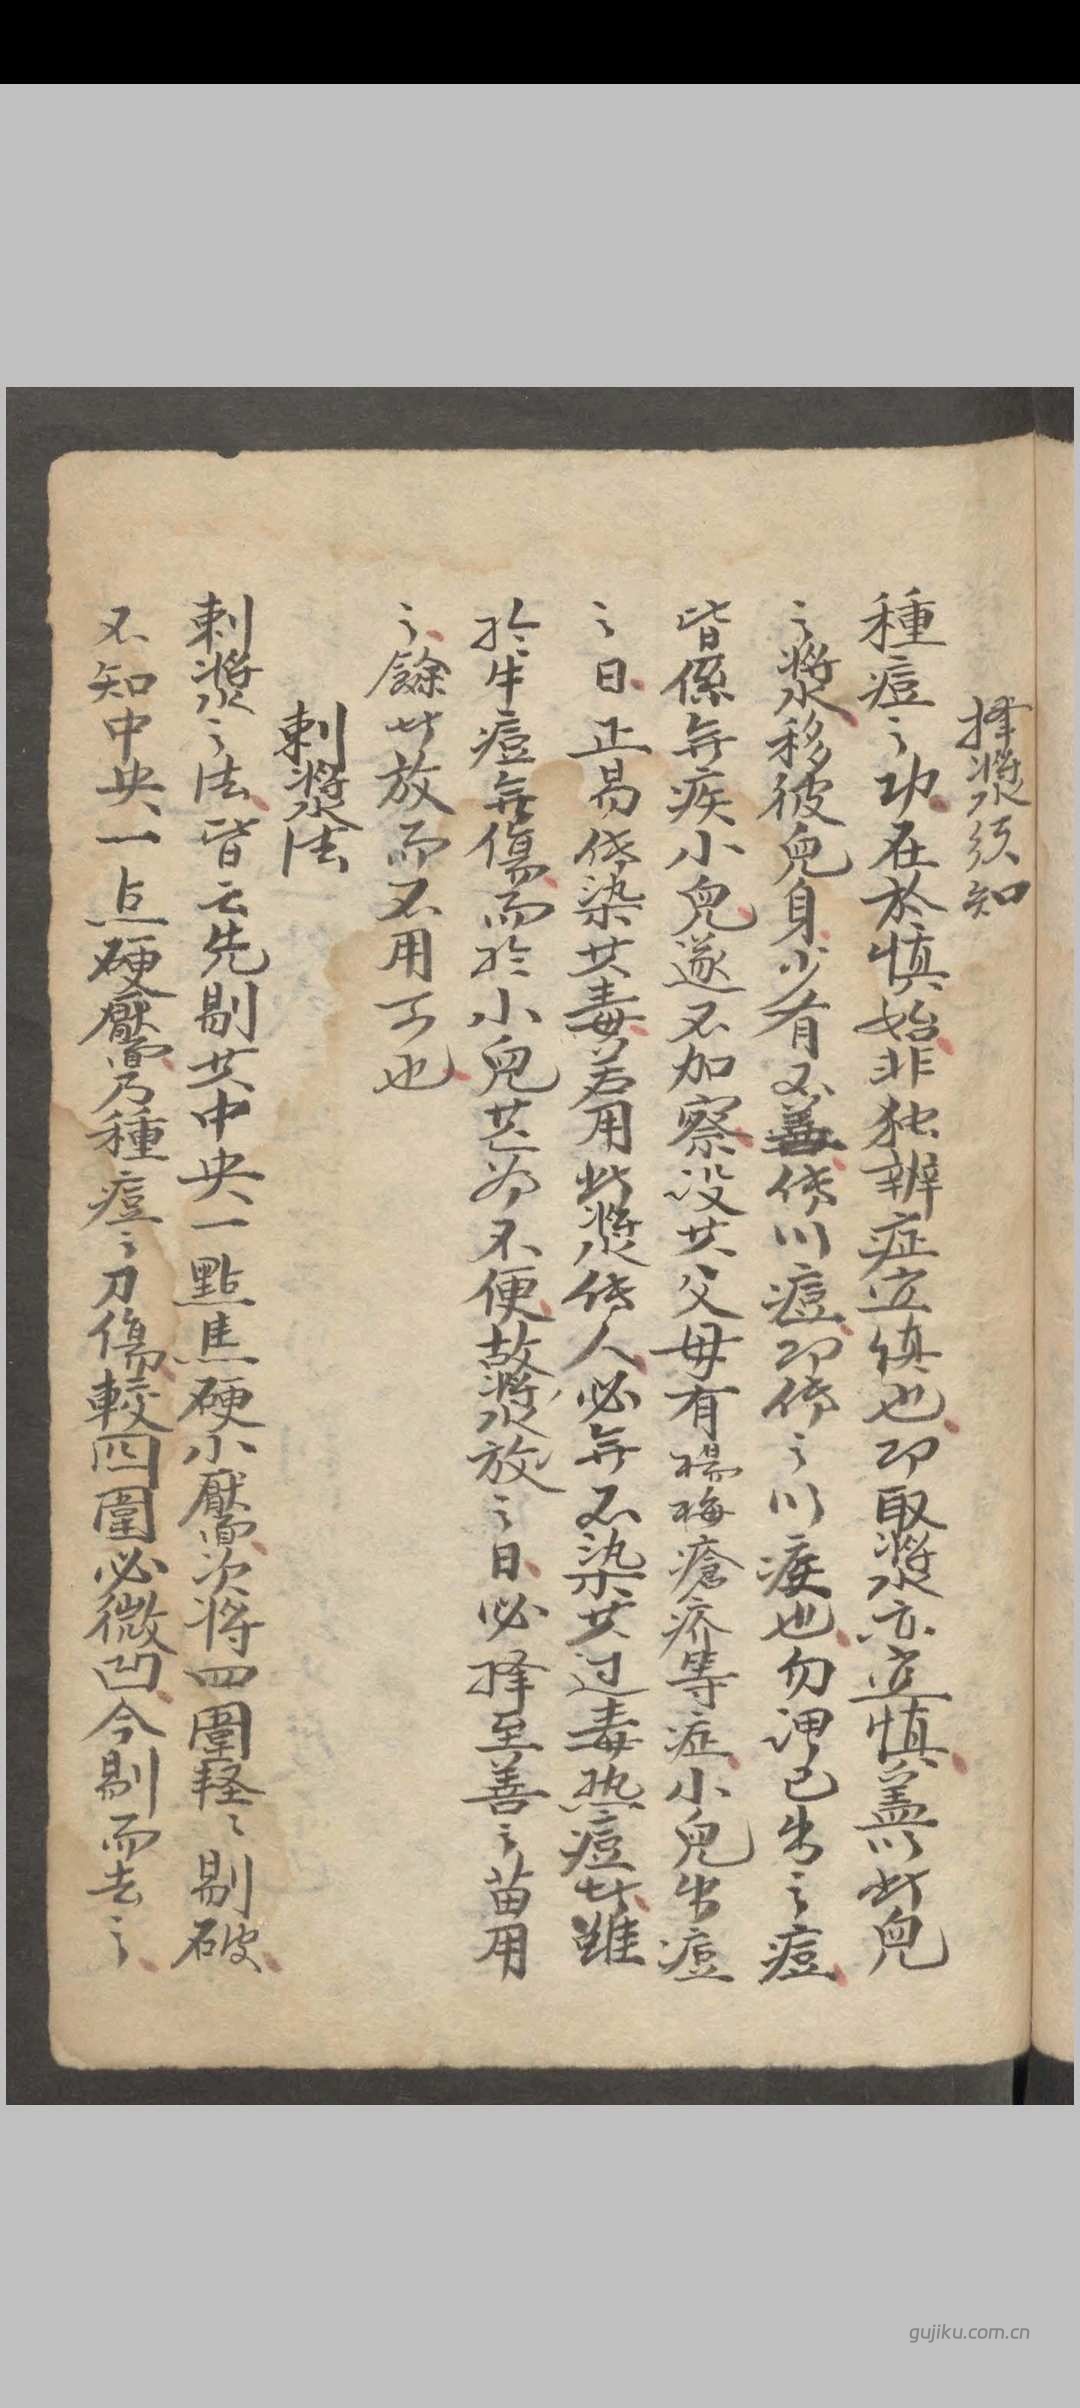 擇漿須知
種痘之功在於慎始非独辨症宜慎也即取漿亦宜慎蓋以此兒
之漿移彼兒身少有不善傳以痘即傳之以疾也勿谓已出之痘
皆係無疾小兒遂不加察没其父毋有楊梅瘡疥等症小兒出痘
之日正易传染其毒若用此漿传人必無不染其过毒热痘者雖
於牛痘無傷而於小兒甚为不便故漿放之日必擇至善之苗用
之餘者放而不用可也
刺漿法
刺漿之法皆云先剔其中央一點焦硬小靨次将四圍軽々剔破
不知中央一点硬靨乃種痘之刀傷較四圍必微凹今剔而去之
gujiku.com.cn